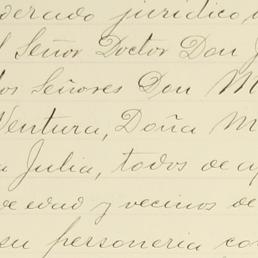 derado jurídico
l Señor Doctor Don J
los Señores Don M
Ventura, Doña M
a Julia, todos de
de edad y vecinos de
su personeria co